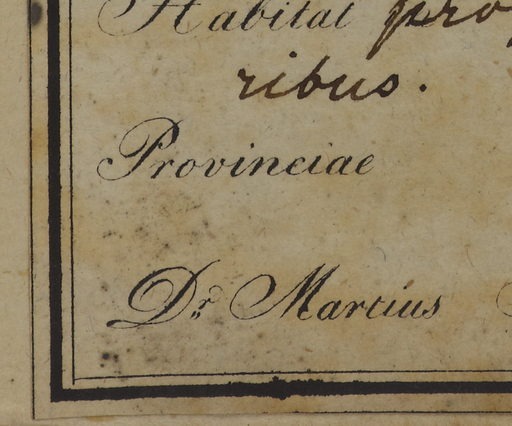 Habitat pro
ribus.
Provinciae
Dr. Martius